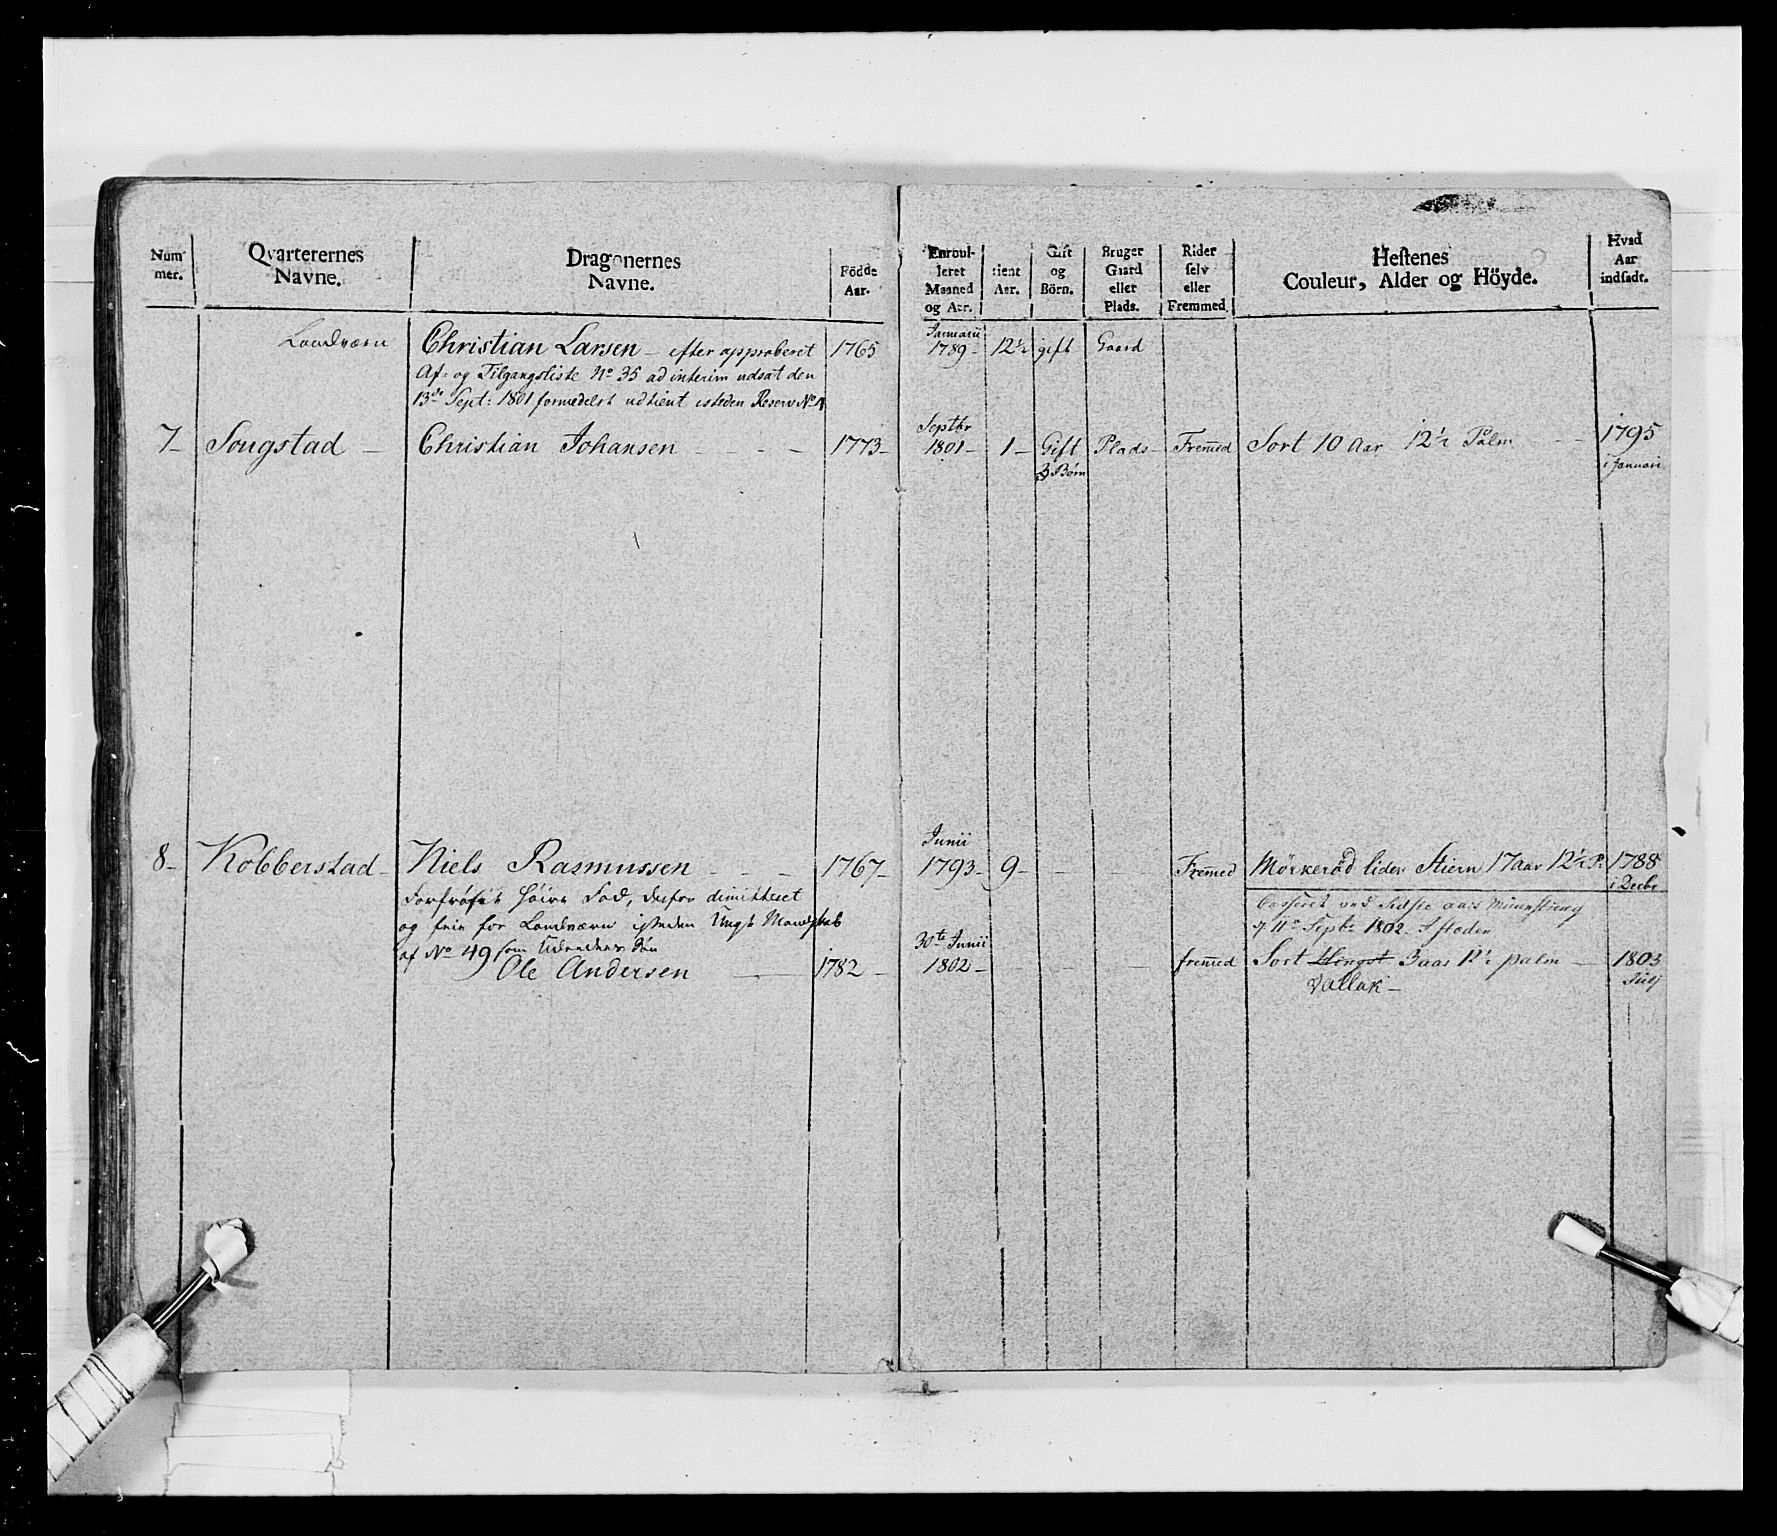 Num-
mer.
Qvarterernes
Navne.
Dragonernes
Navne.
Födde
Aar.
Enroul-
leret
Maaned
og Aar.
tient
Aar.
Gift
og
Börn.
Bruger
Gaard
eller
Plads.
Rider
selv
eller
Fremmed.
Hestenes
Couleur, Alder og Höyde.
Hvad
Aar
indsadt.
Landværn Christian Larsen - efter approberet 1765 Januarii 1789 - 12½ gift Gaard
Af- og Tilgangsliste No 35 ad interim udsat den
13de Sept: 1801 formedelst udtient isteden Reserv No
7 - Sougstad - Christian Johansen - - - - 1773 - Septbr 1801 - 1 - Gift 3 Børn Plads - Fremed Sort 10 Aar 12½ Palm - - 1795 i Januari
8 - Kobberstad - Niels Rasmussen - - - 1767 - Junii 1793 - 9 - - - Fremed Mörkeröd liden Stiern 17 Aar 12½ P. 1788 i Decbr
Forfrosit høire Fod, derfor dimitteret
og frie for Landværn isteden Ungt Mandskab
af No 49 som Udreeders Søn
Casseret ved sidste aars Munstring
11te Septr 1802. I steden
Ole Andersen - 1782 - 30te Junii 1802 - - - fremed Sort Hingst 3 aar 12½ palm - 1803 Julj
Vallak -